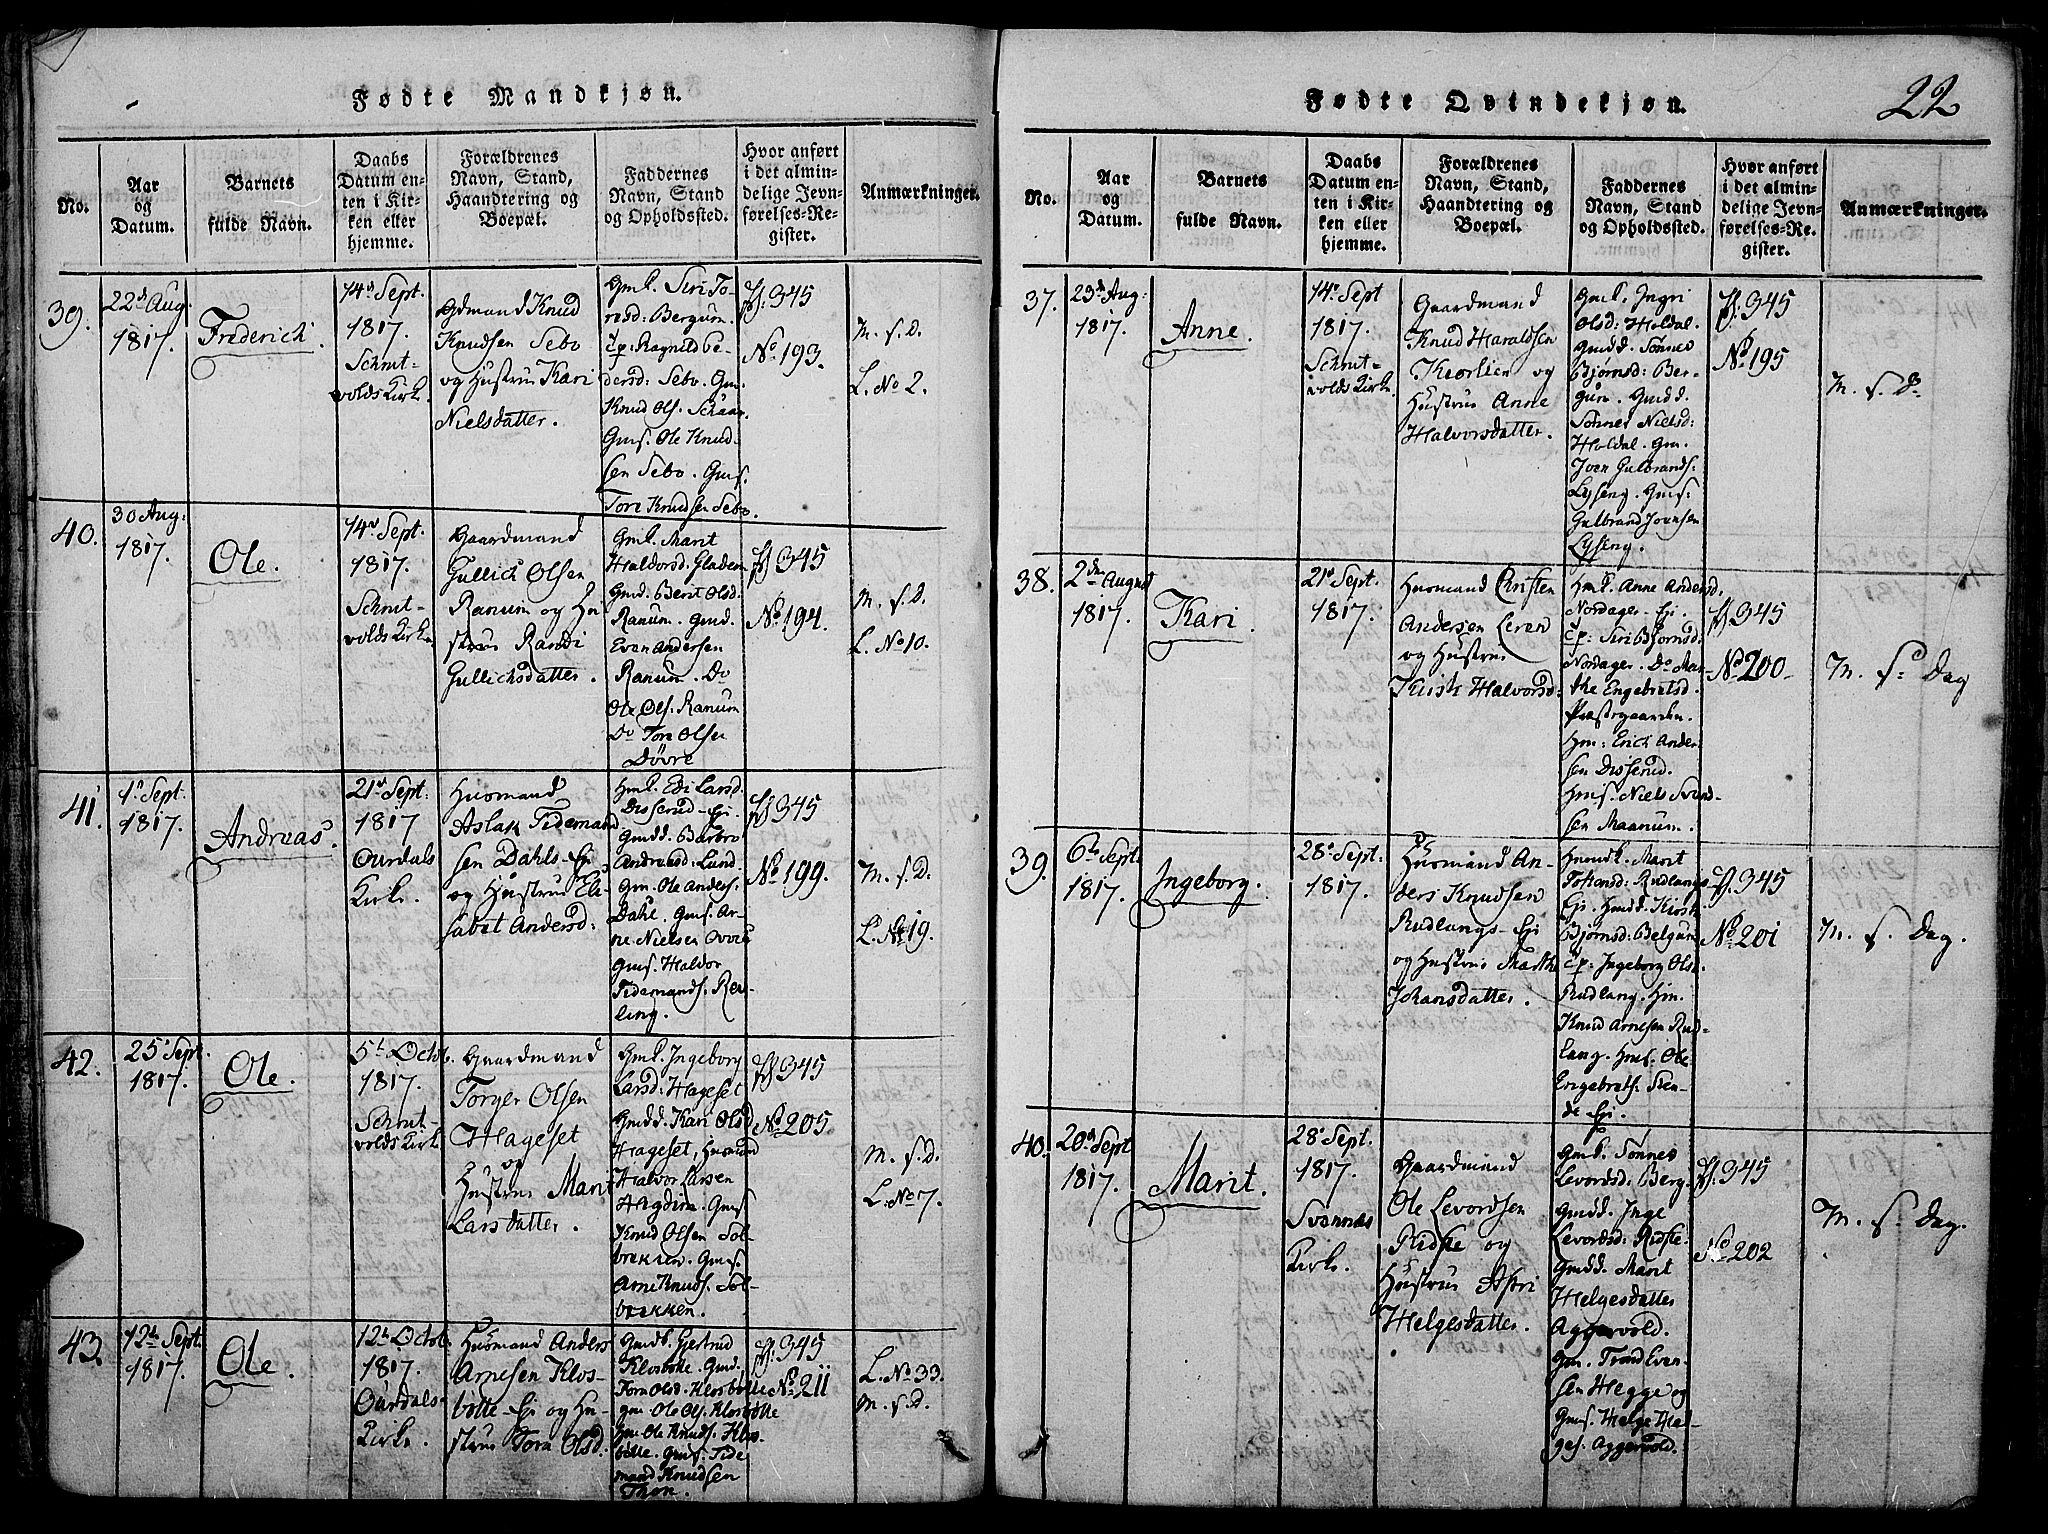 Fødte Mandkjøn.
No.
Aar
og
Datum.
Barnets
fulde Navn.
Daabs
Datum en-
ten i Kir-
ken eller
hjemme.
Forældrenes
Navn, Stand,
Haandtering og
Boepæl.
Faddernes
Navn, Stand
og Opholdssted.
Hvor anført
i det almin-
delige Jevn-
førelses-Re-
gister.
Anmærkninger.
39.
22d Aug
1817.
Frederich
14d Sept.
1817.
Schrut-
volds Kirke.
Gdmand Knud
Knudsen Sebo
og Hustrue Kari
Nielsdatter.
Gmk. Siri To-
resd: Bergum.
Tp: Ragnild Pe-
dersd: Sebo. Gm.
Knud Ols. Schaar
Gms. Ole Knud-
sen Sebo. Gms.
Tore Knudsen Sebo.
P. 345
No 193.
M. s. D.
L. No 2.
40.
30 Aug:
1817.
Ole.
14d Sept.
1817.
Schrut-
volds Kirke
Gaardmand
Gullich Olsen
Ranum og Hu
strue Randi
Gullichsdatter.
Gmk. Marit
Haldorsd. Gladem
Gmd. Berit Olsd.
Ranum. Gmd.
Even Andersen
Ranum. Do
Ole Ols: Ranum
Do Tore Olsen
Dövre
P. 345
No 194.
M. s. D.
L. No 10.
41.
1s Sept.
1817.
Andreas.
21d Sept.
1817
Ourdals
Kirke.
Husmand
Aslak Tidemand
sen Dahls-Ej
og Hustrue Eli-
sabet Andersd:
Hmk. Edi Larsd.
Disserud-Ej
Gmdd. Barbro
Andreasd: Lund
Gm. Ole Anders.
Dahl. Gms. Ar-
ne Nielsen
Gms. Haldor
Tidemands. Rev-
ling.
P. 345
No 199.
M. s. D.
L. No 19.
42.
25 Sept.
1817.
Ole.
5th Octob.
1817.
Schrut-
volds Kirke
Gaardmand
Torger Olsen
Hageset
og
Hustrue Marit
Larsdatter.
Gmk. Ingeborg
Larsd: Hageset
Gmdd. Kari Olsd
Hageset, Husmand
Halvor Larsen
Hegdin. Gms.
Knud Olsen Sol-
brekken. Gms.
Arne Knuds. Sol-
brekken.
P. 345
No 205
M. s. D.
L. No 7.
43.
12th Sept.
1817.
Ole.
12th Octob.
1817.
Ourdals-
Kirke.
Husmand Anders
Arnesen Klos-
bötte-Ej og Hu-
strue Torn Olsd.
Gmdk. Gertrud
Klosbötte. Gmd.
Torn Olsd. Klosbötte
gm. Ole Ols. Klosbötte
Gm Ole Knuds. Klos-
bötte. Gms. Tide
mand Knudsen
Thon.
P. 345
No. 211
L. No 33.
M. s. D.
Fødte Qvindekjøn.
22
No.
Aar
og
Datum.
Barnets
fulde Navn.
Daabs
Datum en-
ten i Kir-
ken eller
hjemme.
Forældrenes
Navn, Stand,
Haandtering og
Boepæl.
Faddernes
Navn, Stand
og Opholdssted.
Hvor anført
i det almin-
delige Jevn-
førelses-Re-
gister.
Anmærkninger.
37.
23d Aug:
1817.
Anne.
14d Sept
1817.
Schrut-
volds Kirke
Gaardmand
Knud Haraldsen
Kiorlien og
Hustrue Anne
Halvorsdatter.
Gmk. Ingri
Olsd: Holdal.
Gmdd. Sönnev
Björnsd: Ber-
gum. Gmdd.
Sönnev Nielsd:
Holdal. Gm.
Iver Gulbrands:
Lyseng. Gms:
Gulbrand Iversen
Lyseng.
P. 345
No 195
M. s. D.
38.
2den August
1817.
Kari.
21d Sept.
1817.
Husmand Christen
Andersen Leren
og Hustrue
Kirsti Halvorsd:
Hmk. Anne Andersd.
Nordager-Ej.
Tp: Siri Björnsd:
Nordager. Do Mar-
the Engebretsd.
Præstegaarden.
Hm: Erich Ander-
sen Disserud.
Hms. Niels Svend-
sen Maanum.
P. 345
No 200
M. s: Dag
39.
6th Sept.
1817.
Ingeborg.
28d Sept.
1817.
Husmand An-
ders Knudsen
Rudlangs-Ej
og Hustrue Marthe
Johansdatter.
Hmdk. Marit
Johansd: Rudlangs-
Ej. Hmdd. Kirsti
Björnsd: Belgum
Tp: Ingeborg Olsd
Rudlang. Hm.
Knud Arnesen Rud-
lang. Hms. Ole
Engebrets. Sten-
de Ej.
P. 345
No 201
M. s. Dag.
40.
20d Sept
1817.
Marit.
28d Sept.
1817.
Svennæs
Kirke.
Gaardmand
Ole Levordsen
Ridste og
Hustrue Astri
Helgesdatter.
Gmk. Sönnev
Levordsd: Berg.
Gmdd. Inge
Levordsd: Ridste-
Gmdd. Marit
Helgesdatter
Aggervold.
Gm. Trond Even-
sen Hegge og
Gms. Helge Hel-
ges. Aggervold.
P. 345
No 202
M. s. Dag.